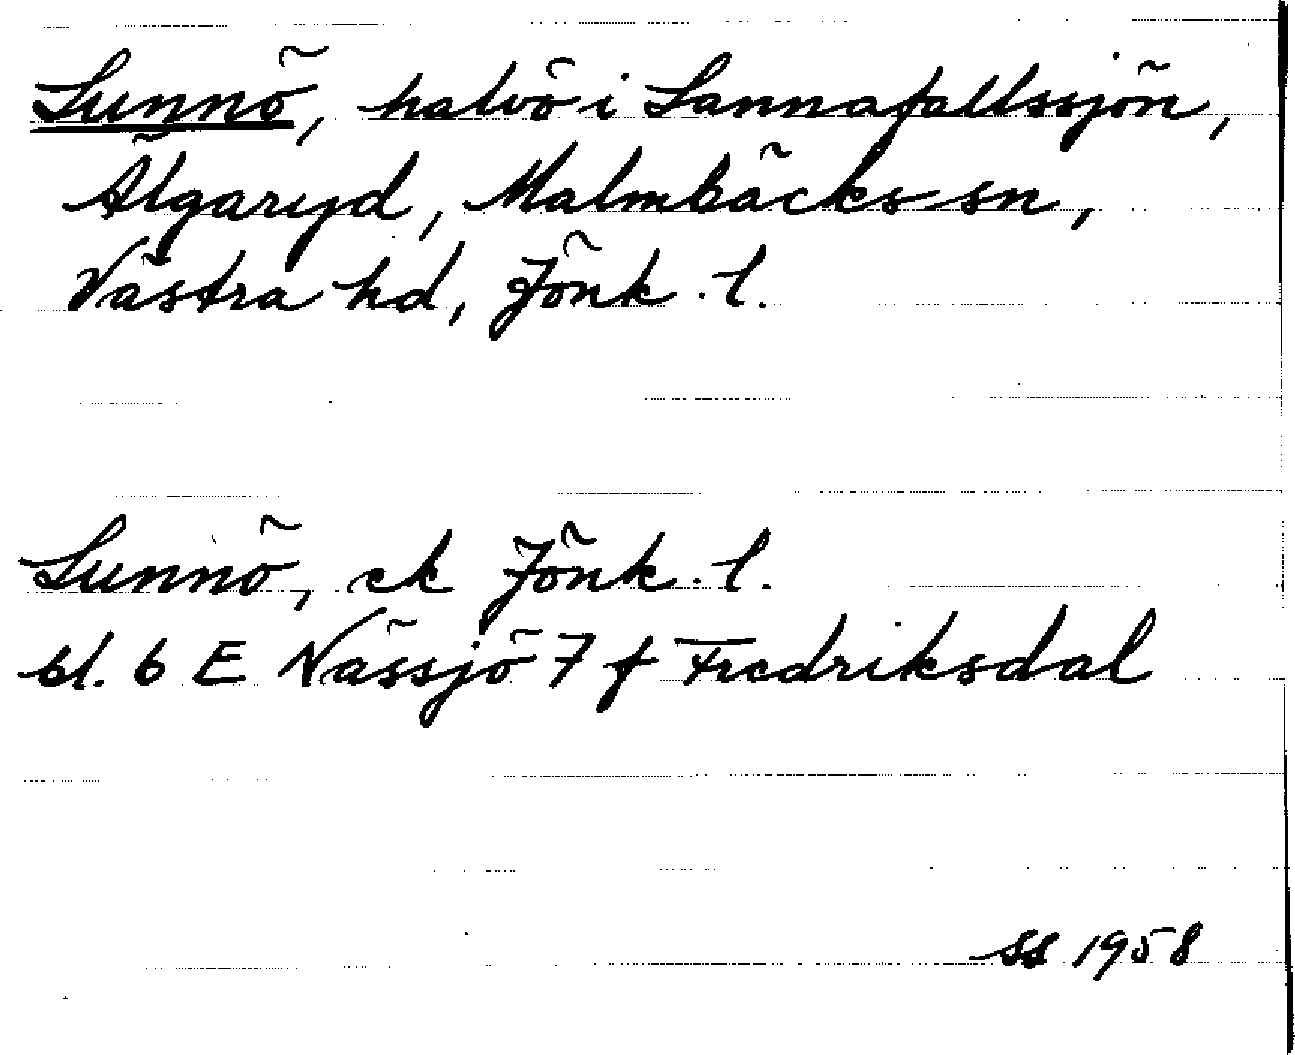 Sunnö, halvö i Sannafallssjön,
Älgaryd, Malmbäcks sn,
Västra hd, Jönk. l.
Sunnö, ek Jönk. l.
bl. 6 E Nässjö 7 f Fredriksdal
SS 1958